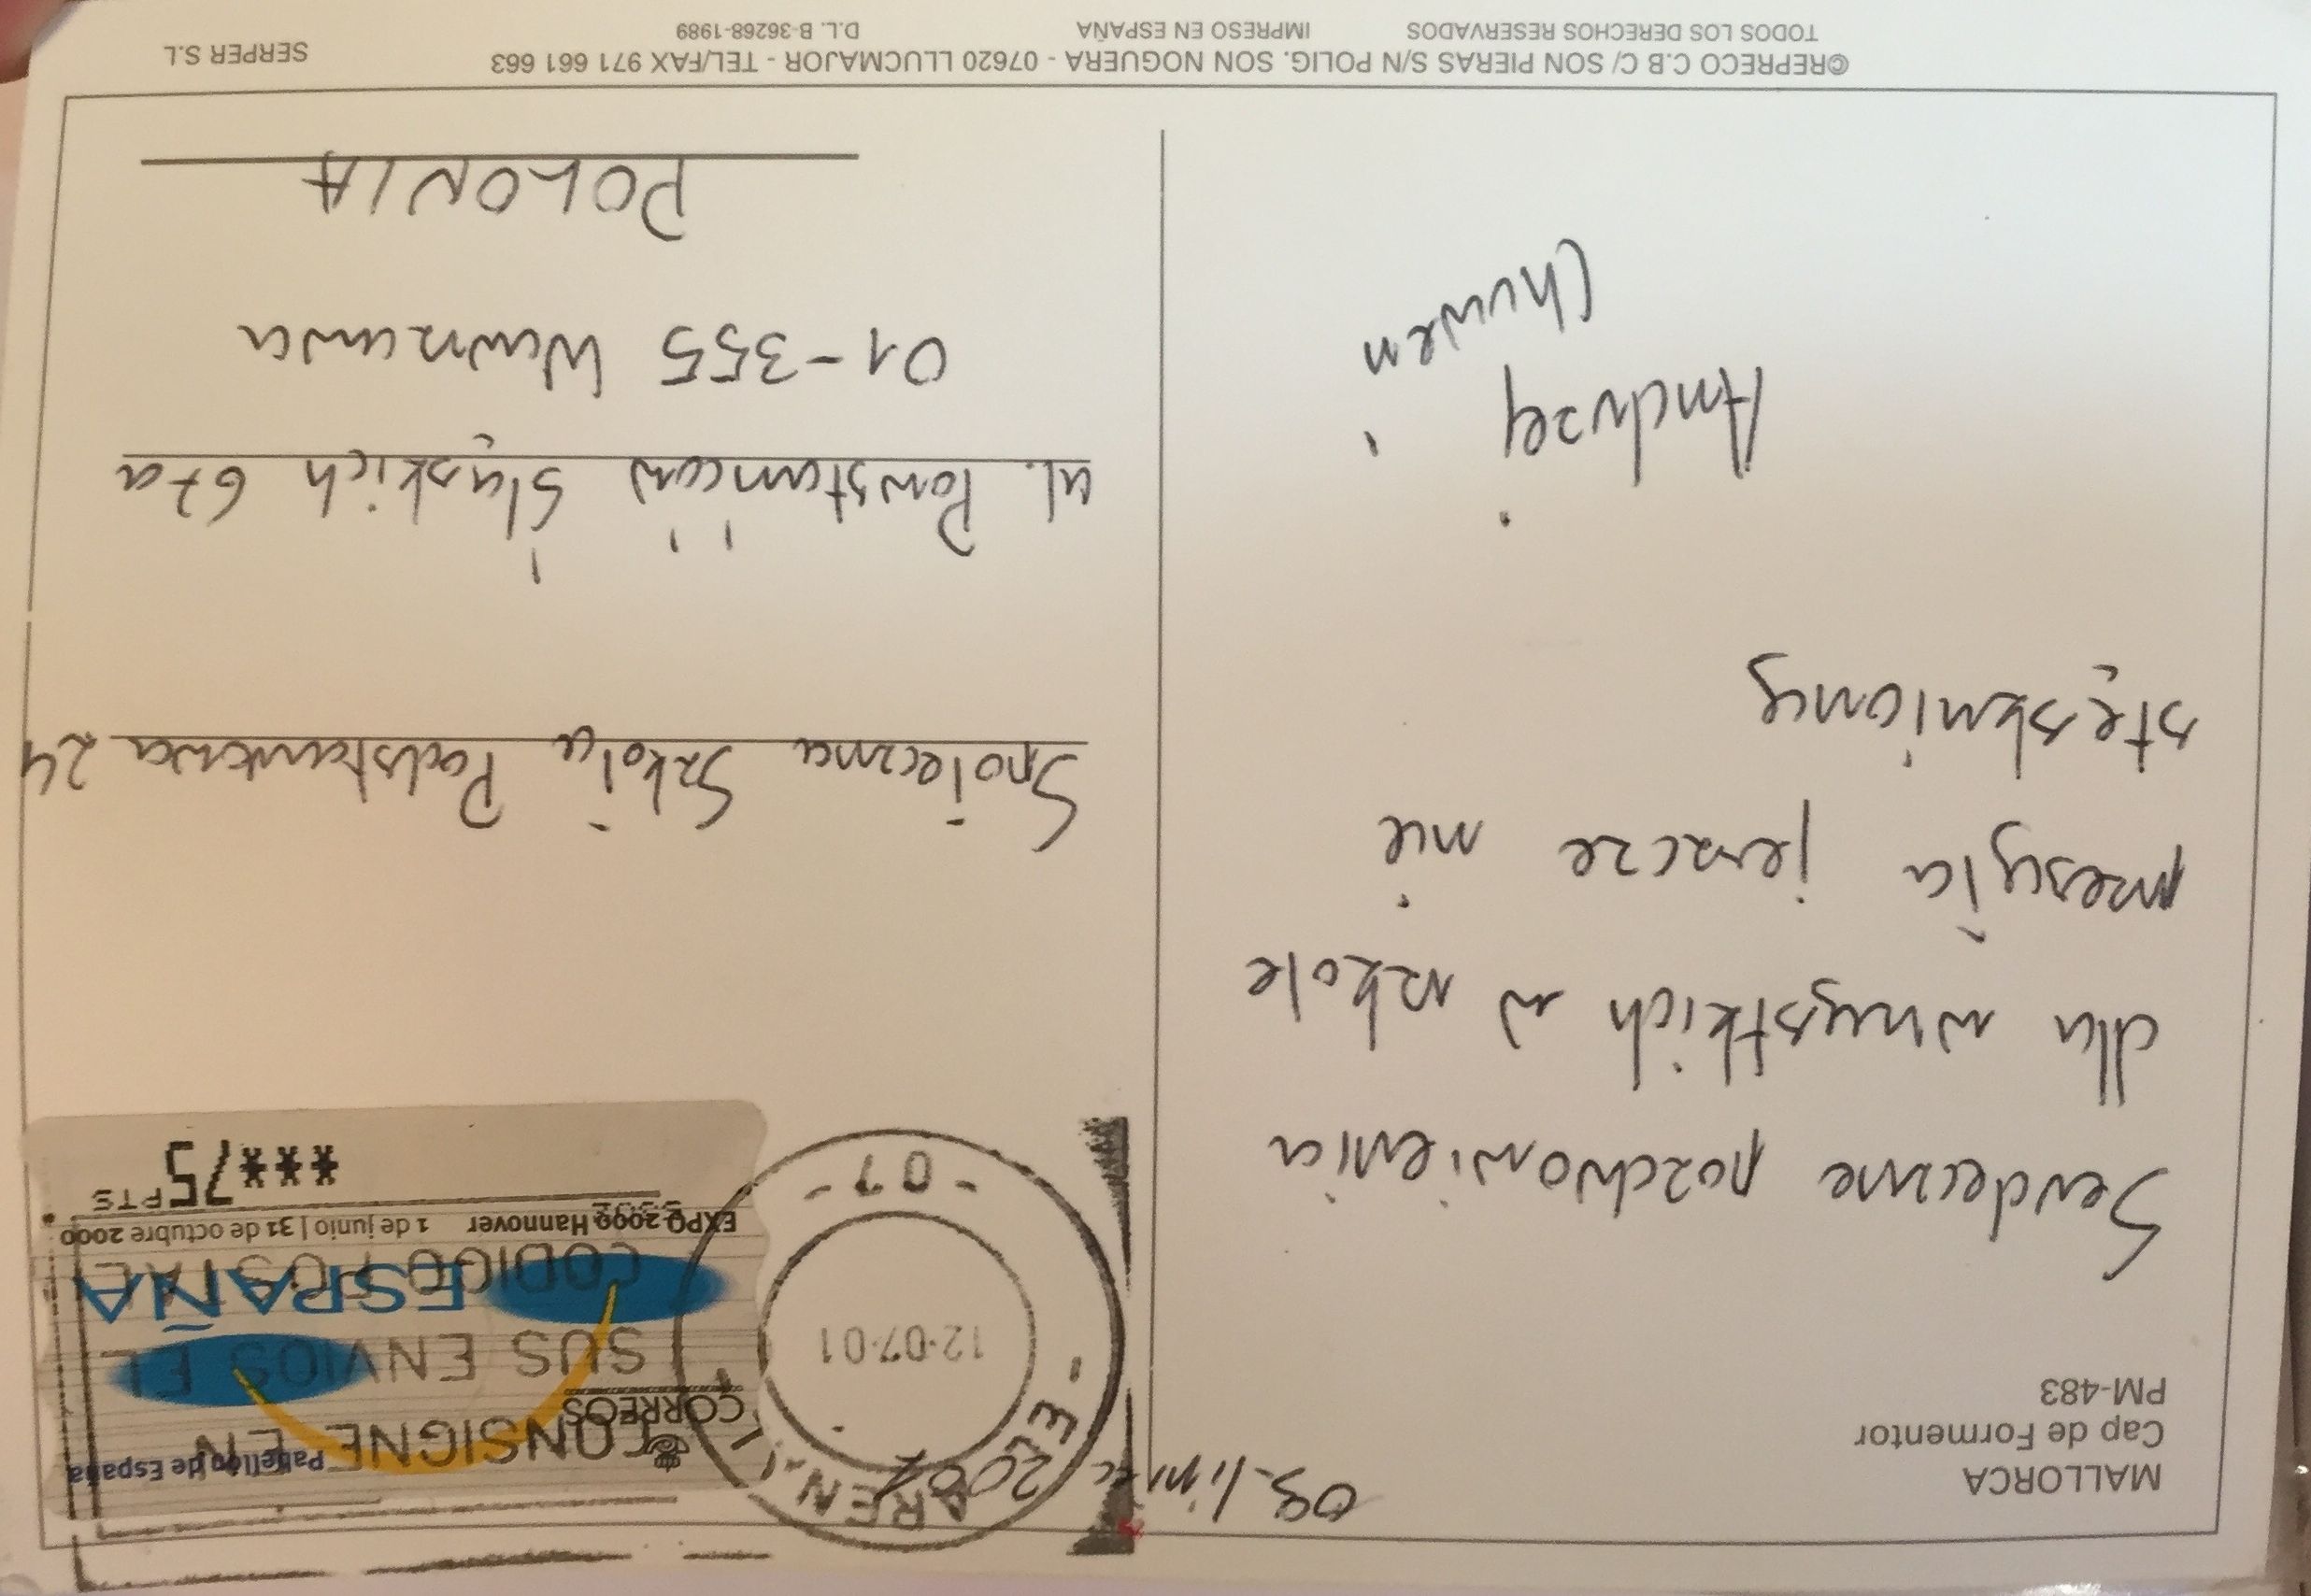 MALLORCA
Cap de Formentor
PM-483
09. lipiec 2001
Serdeczne pozdrowienia
dla wszystkich w szkole
przesyła jeszcze nie
stęskniony
Andrzej
Chuwen
Pabellón de España
CORREOS
ESPAÑA
EXPO 2000 Hannover 1 de junio | 31 de octubre 2000
PTS
***75
CONSIGNE EN
SUS ENVIOS EL
CODIGO POSTAL
12-07-01
- 07 -
Społeczna Szkoła Podstawowa 24
ul. Powstańców Śląskich 67a
01-355 Warszawa
POLONIA
©REPRECO C.B C/ SON PIERAS S/N POLIG. SON NOGUERA - 07620 LLUCMAJOR - TEL/FAX 971 661 663 SERPER S.L
TODOS LOS DERECHOS RESERVADOS IMPRESO EN ESPAÑA D.L. B-36268-1989